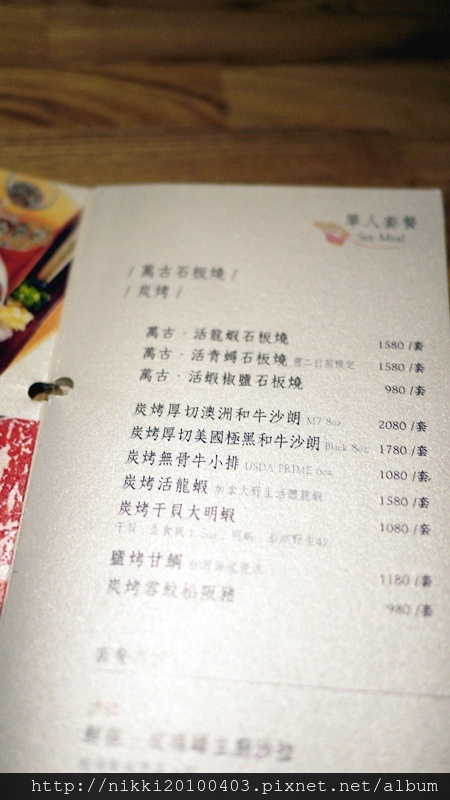 單人套餐
Set Meal
/ 萬古石板燒 /
/ 炭烤 /
萬古．活龍蝦石板燒 1580 /套
萬古．活青蟳石板燒 需二日前預定 1580 /套
萬古．活蝦椒鹽石板燒 980 /套
炭烤厚切澳洲和牛沙朗 M7 8oz 2080 /套
炭烤厚切美國極黑和牛沙朗 Black 8oz 1780 /套
炭烤無骨牛小排 USDA PRIME 6oz 1080 /套
炭烤活龍蝦 加拿大野生活體龍蝦 1580 /套
炭烤干貝大明蝦 1080 /套
鹽烤甘鯛 1180 /套
炭烤雪紋松阪豬 980 /套
套餐
http://nikki20100403.pixnet.net/album